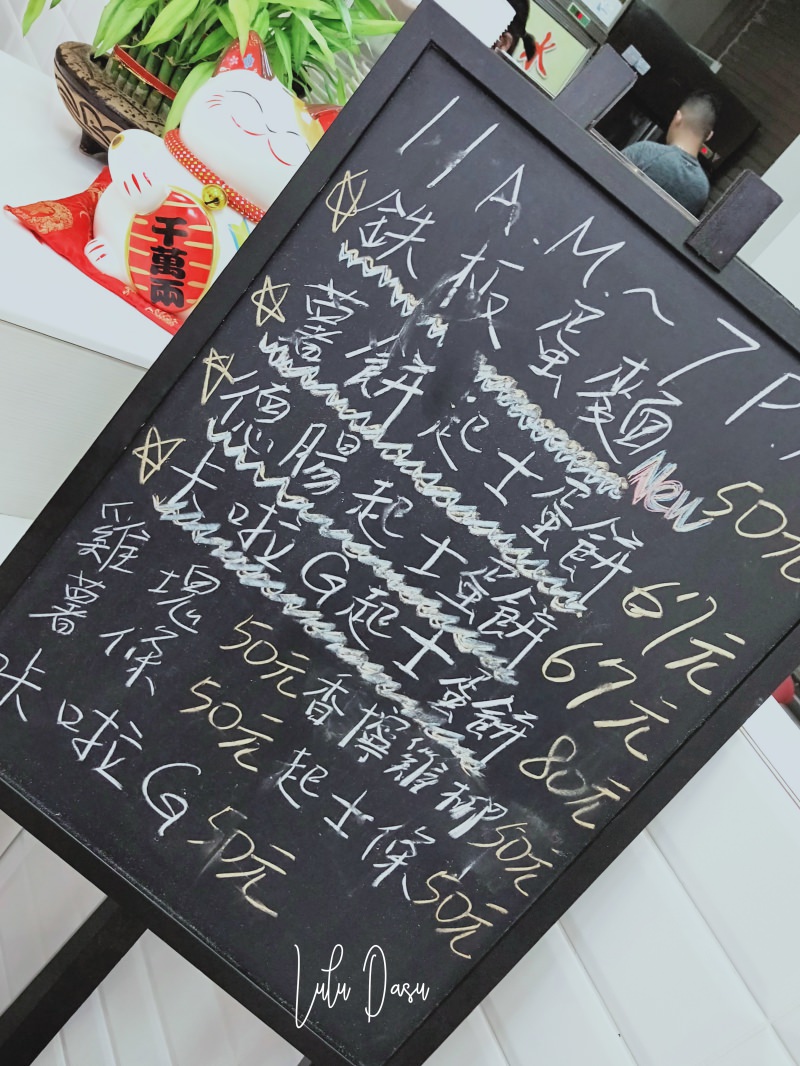 火
千萬兩
11A.M.~7P.
鉄板蛋麵 New 50元
薯餅起士蛋餅 67元
德腸起士蛋餅 67元
卡啦G起士蛋餅 80元
雞塊 50元 香檸雞柳 50元
薯條 50元 起士條 50元
咔啦G 50元
Lulu Dasu